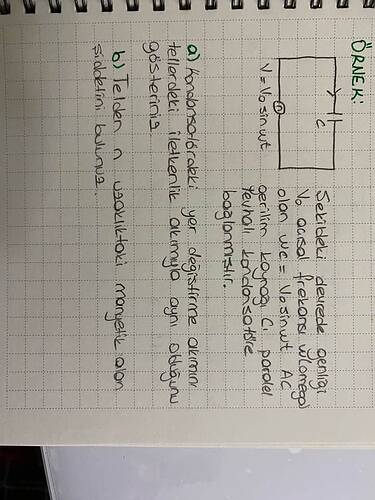 ÖRNEK:
C
V = V₀ sinwt
Şekildeki devrede genliği
V₀ açısal frekansı w(omega)
olan vc = V₀ sinwt AC
gerilim kaynağı C₁ paralel
levhalı kondansatöre
bağlanmıştır.
a) Kondansatördeki yer değiştirme akımının
tellerdeki iletkenlik akımıyla aynı olduğunu
gösteriniz
b) Telden r uzaklıktaki manyetik alan
şiddetini bulunuz.